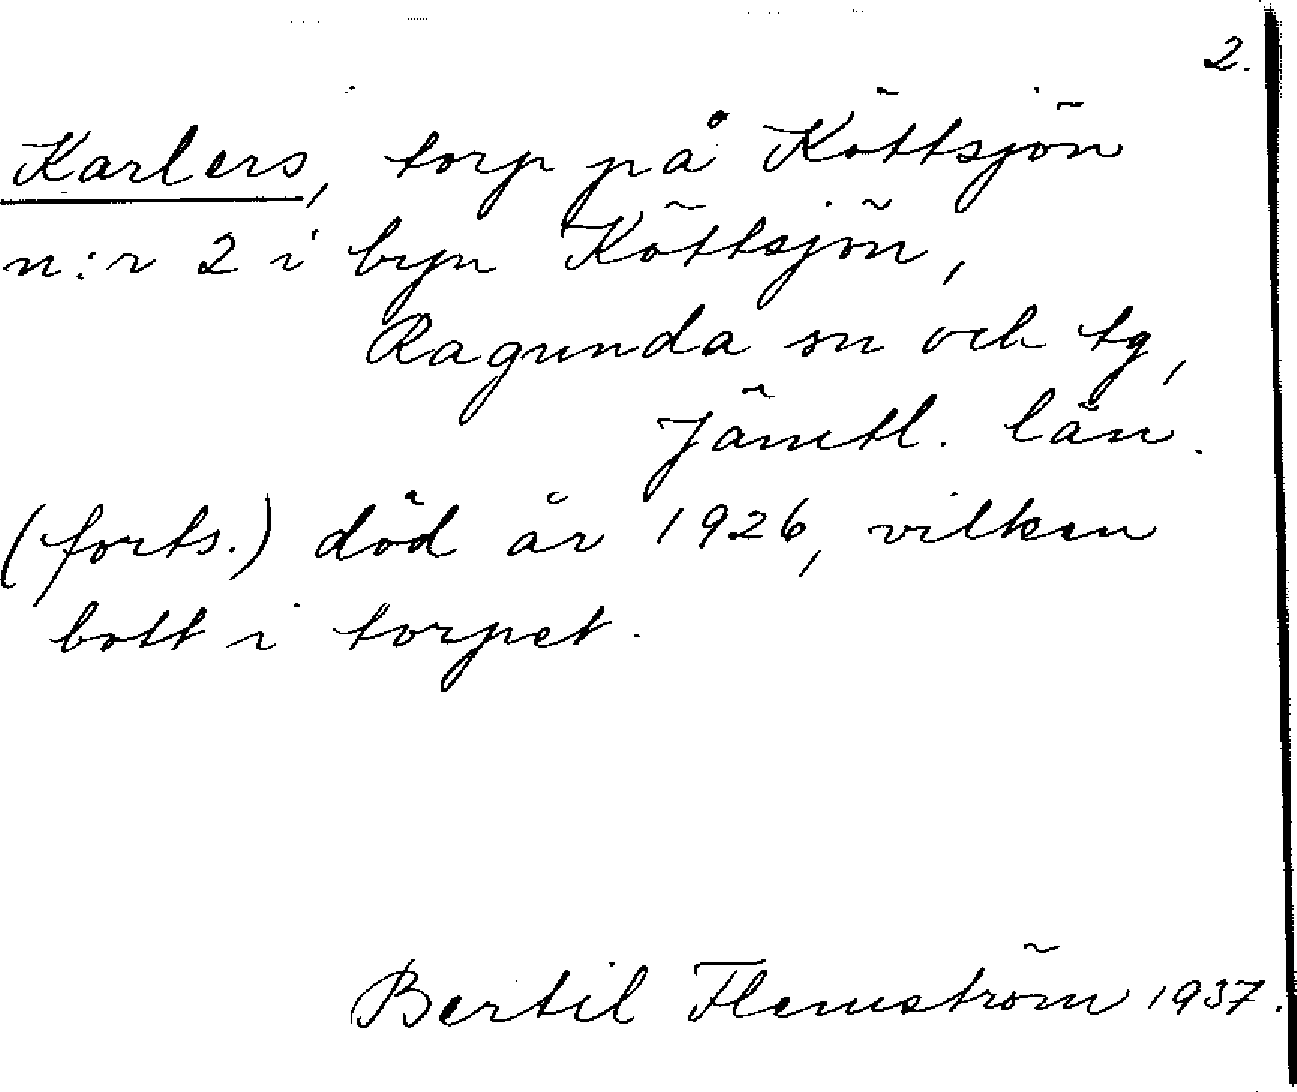 2.
Karlers, torp på Köttsjön
n:r 2 i byn Köttsjön,
Ragunda sn och tg,
Jämtl. län.
(forts.) död år 1926, vilken
bott i torpet.
Bertil Flemström 1937.